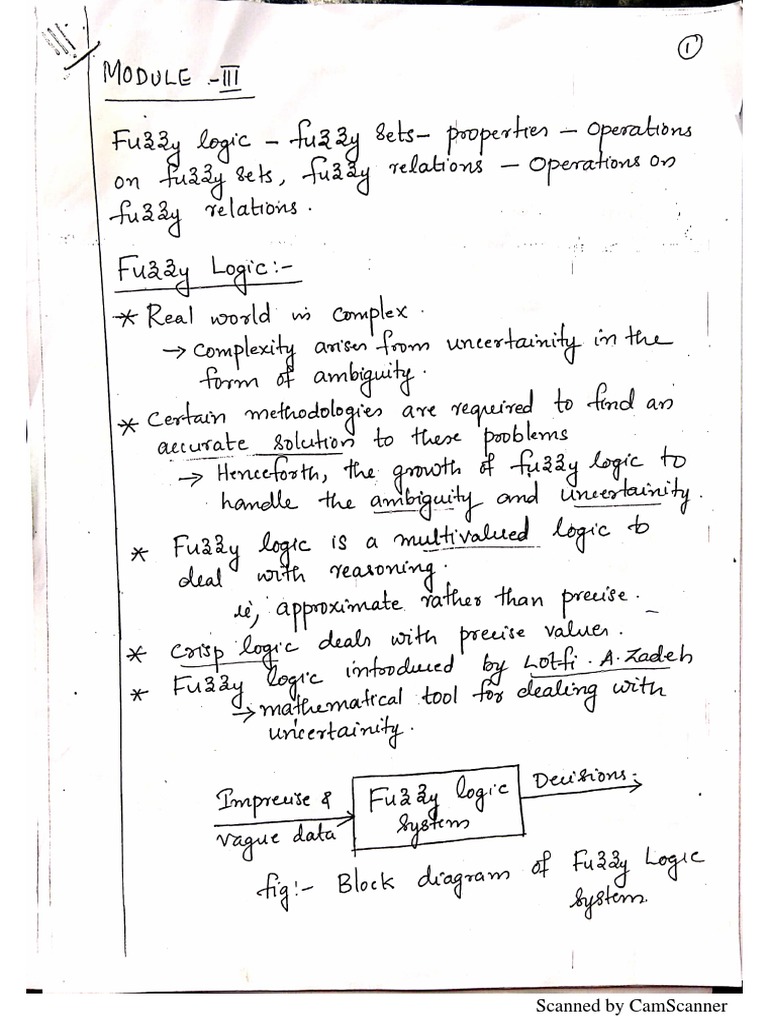 1
MODULE - III
Fuzzy logic - fuzzy sets- properties - Operations
on fuzzy sets, fuzzy relations - Operations on
fuzzy relations.
Fuzzy Logic:-
* Real world is complex.
→ Complexity arises from uncertainity in the
form of ambiguity.
* Certain methodologies are required to find an
accurate solution to these problems
→ Henceforth, the growth of fuzzy logic to
handle the ambiguity and uncertainity.
* Fuzzy logic is a multivalued logic to
deal with reasoning.
ie, approximate rather than precise.
* Crisp logic deals with precise values.
* Fuzzy logic introduced by Lotfi. A. Zadeh
→ mathematical tool for dealing with
uncertainity.
Imprecise &
vague data
Fuzzy logic
system
Decisions.
fig:- Block diagram of Fuzzy Logic
system.
Scanned by CamScanner